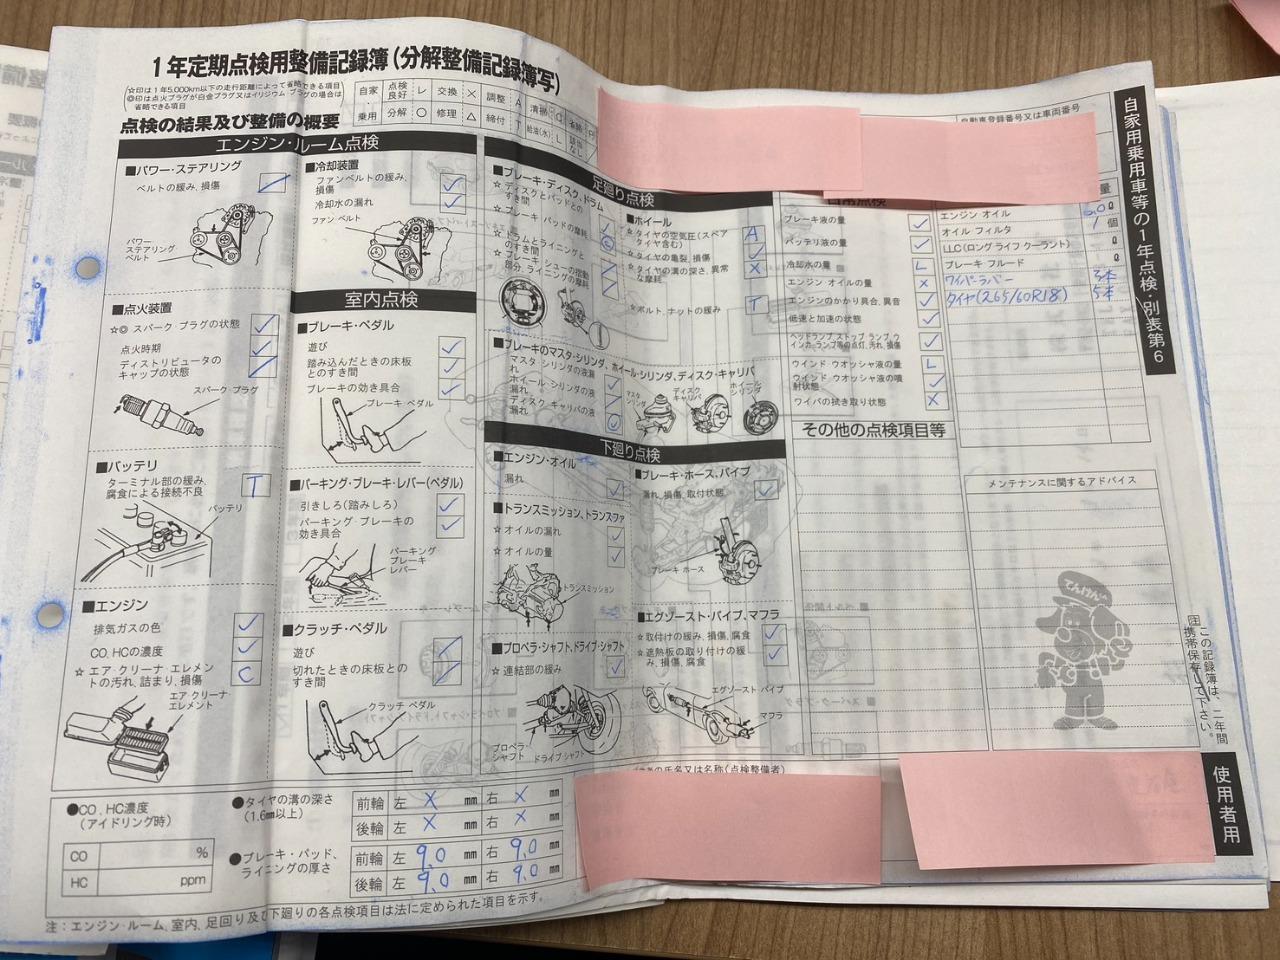 1年定期点検用整備記録簿(分解整備記録簿写)
☆印は1年5,000km以下の走行距離によって省略できる項目
◎印は点火プラグが白金プラグ又はイリジウム・プラグの場合は
省略できる項目
自家
乗用
点検
良好
レ
交換
×
調整
A
清掃
C
省略
P
分解
○
修理
△
締付
T
給油(水)
L
該当
なし
点検の結果及び整備の概要
自動車登録番号又は車両番号
自家用乗用車等の1年点検・別表第6
エンジン・ルーム点検
■パワー・ステアリング
ベルトの緩み、損傷
パワー
ステアリング
ベルト
■点火装置
☆◎ スパーク・プラグの状態
点火時期
ディストリビュータの
キャップの状態
スパーク・プラグ
■バッテリ
ターミナル部の緩み、
腐食による接続不良
T
バッテリ
■エンジン
排気ガスの色
CO、HCの濃度
☆ エア・クリーナ・エレメン
トの汚れ、詰まり、損傷
C
エア・クリーナ・
エレメント
■冷却装置
ファンベルトの緩み、
損傷
冷却水の漏れ
ファン ベルト
室内点検
■ブレーキ・ペダル
遊び
踏み込んだときの床板
とのすき間
ブレーキの効き具合
ブレーキ・ペダル
■パーキング・ブレーキ・レバー(ペダル)
引きしろ(踏みしろ)
パーキング・ブレーキの
効き具合
パーキング
ブレーキ
レバー
■クラッチ・ペダル
遊び
切れたときの床板との
すき間
クラッチ ペダル
足廻り点検
■ブレーキ・ディスク、ドラム
☆ ディスクとパッドとの
すき間
☆ ブレーキ・パッドの摩耗
☆ ドラムとライニングと
のすき間
☆ ブレーキ・シューの摺動
部分、ライニングの摩耗
■ホイール
☆ タイヤの空気圧(スペア
タイヤ含む)
A
☆ タイヤの亀裂、損傷
☆ タイヤの溝の深さ、異常
な摩耗
×
☆ ボルト、ナットの緩み
T
■ブレーキのマスタ・シリンダ、ホイール・シリンダ、ディスク・キャリパ
マスタ・シリンダの液漏
れ
ホイール・シリンダの液
漏れ
ディスク・キャリパの液
漏れ
マスタ
シリンダ
ディスク
キャリパ
ホイール
シリンダ
下廻り点検
■エンジン・オイル
漏れ
■トランスミッション、トランスファ
☆ オイルの漏れ
☆ オイルの量
トランスミッション
■プロペラ・シャフト、ドライブ・シャフト
☆ 連結部の緩み
プロペラ・
シャフト
ドライブ・シャフト
■ブレーキ・ホース、パイプ
漏れ、損傷、取付状態
ブレーキ ホース
■エグゾースト・パイプ、マフラ
☆ 取付けの緩み、損傷、腐食
☆ 遮熱板の取り付けの緩
み、損傷、腐食
エグゾースト パイプ
マフラ
日常点検
ブレーキ液の量
バッテリ液の量
冷却水の量
L
エンジン オイルの量
×
エンジンのかかり具合、異音
低速と加速の状態
ヘッドランプ、ストップ ランプ、ウ
インカ・ランプ等の点灯、汚れ、損傷
ウインド ウオッシャ液の量
L
ウインド ウオッシャ液の噴
射状態
ワイパの拭き取り状態
×
その他の点検項目等
量
エンジン オイル
6.0ℓ
オイル フィルタ
1 個
LLC(ロング ライフ クーラント)
ℓ
ブレーキ フルード
ℓ
ワイパーラバー
3本
タイヤ(265/60R18)
5本
メンテナンスに関するアドバイス
てんけんくん
この記録簿は、二年間
携帯保存して下さい。
使用者用
●CO、HC濃度
(アイドリング時)
CO
%
HC
ppm
●タイヤの溝の深さ
(1.6mm以上)
前輪 左 × mm 右 × mm
後輪 左 × mm 右 × mm
●ブレーキ・パッド、
ライニングの厚さ
前輪 左 9.0 mm 右 9.0 mm
後輪 左 9.0 mm 右 9.0 mm
の氏名又は名称(点検整備者)
注:エンジン・ルーム、室内、足回り及び下廻りの各点検項目は法に定められた項目を示す。